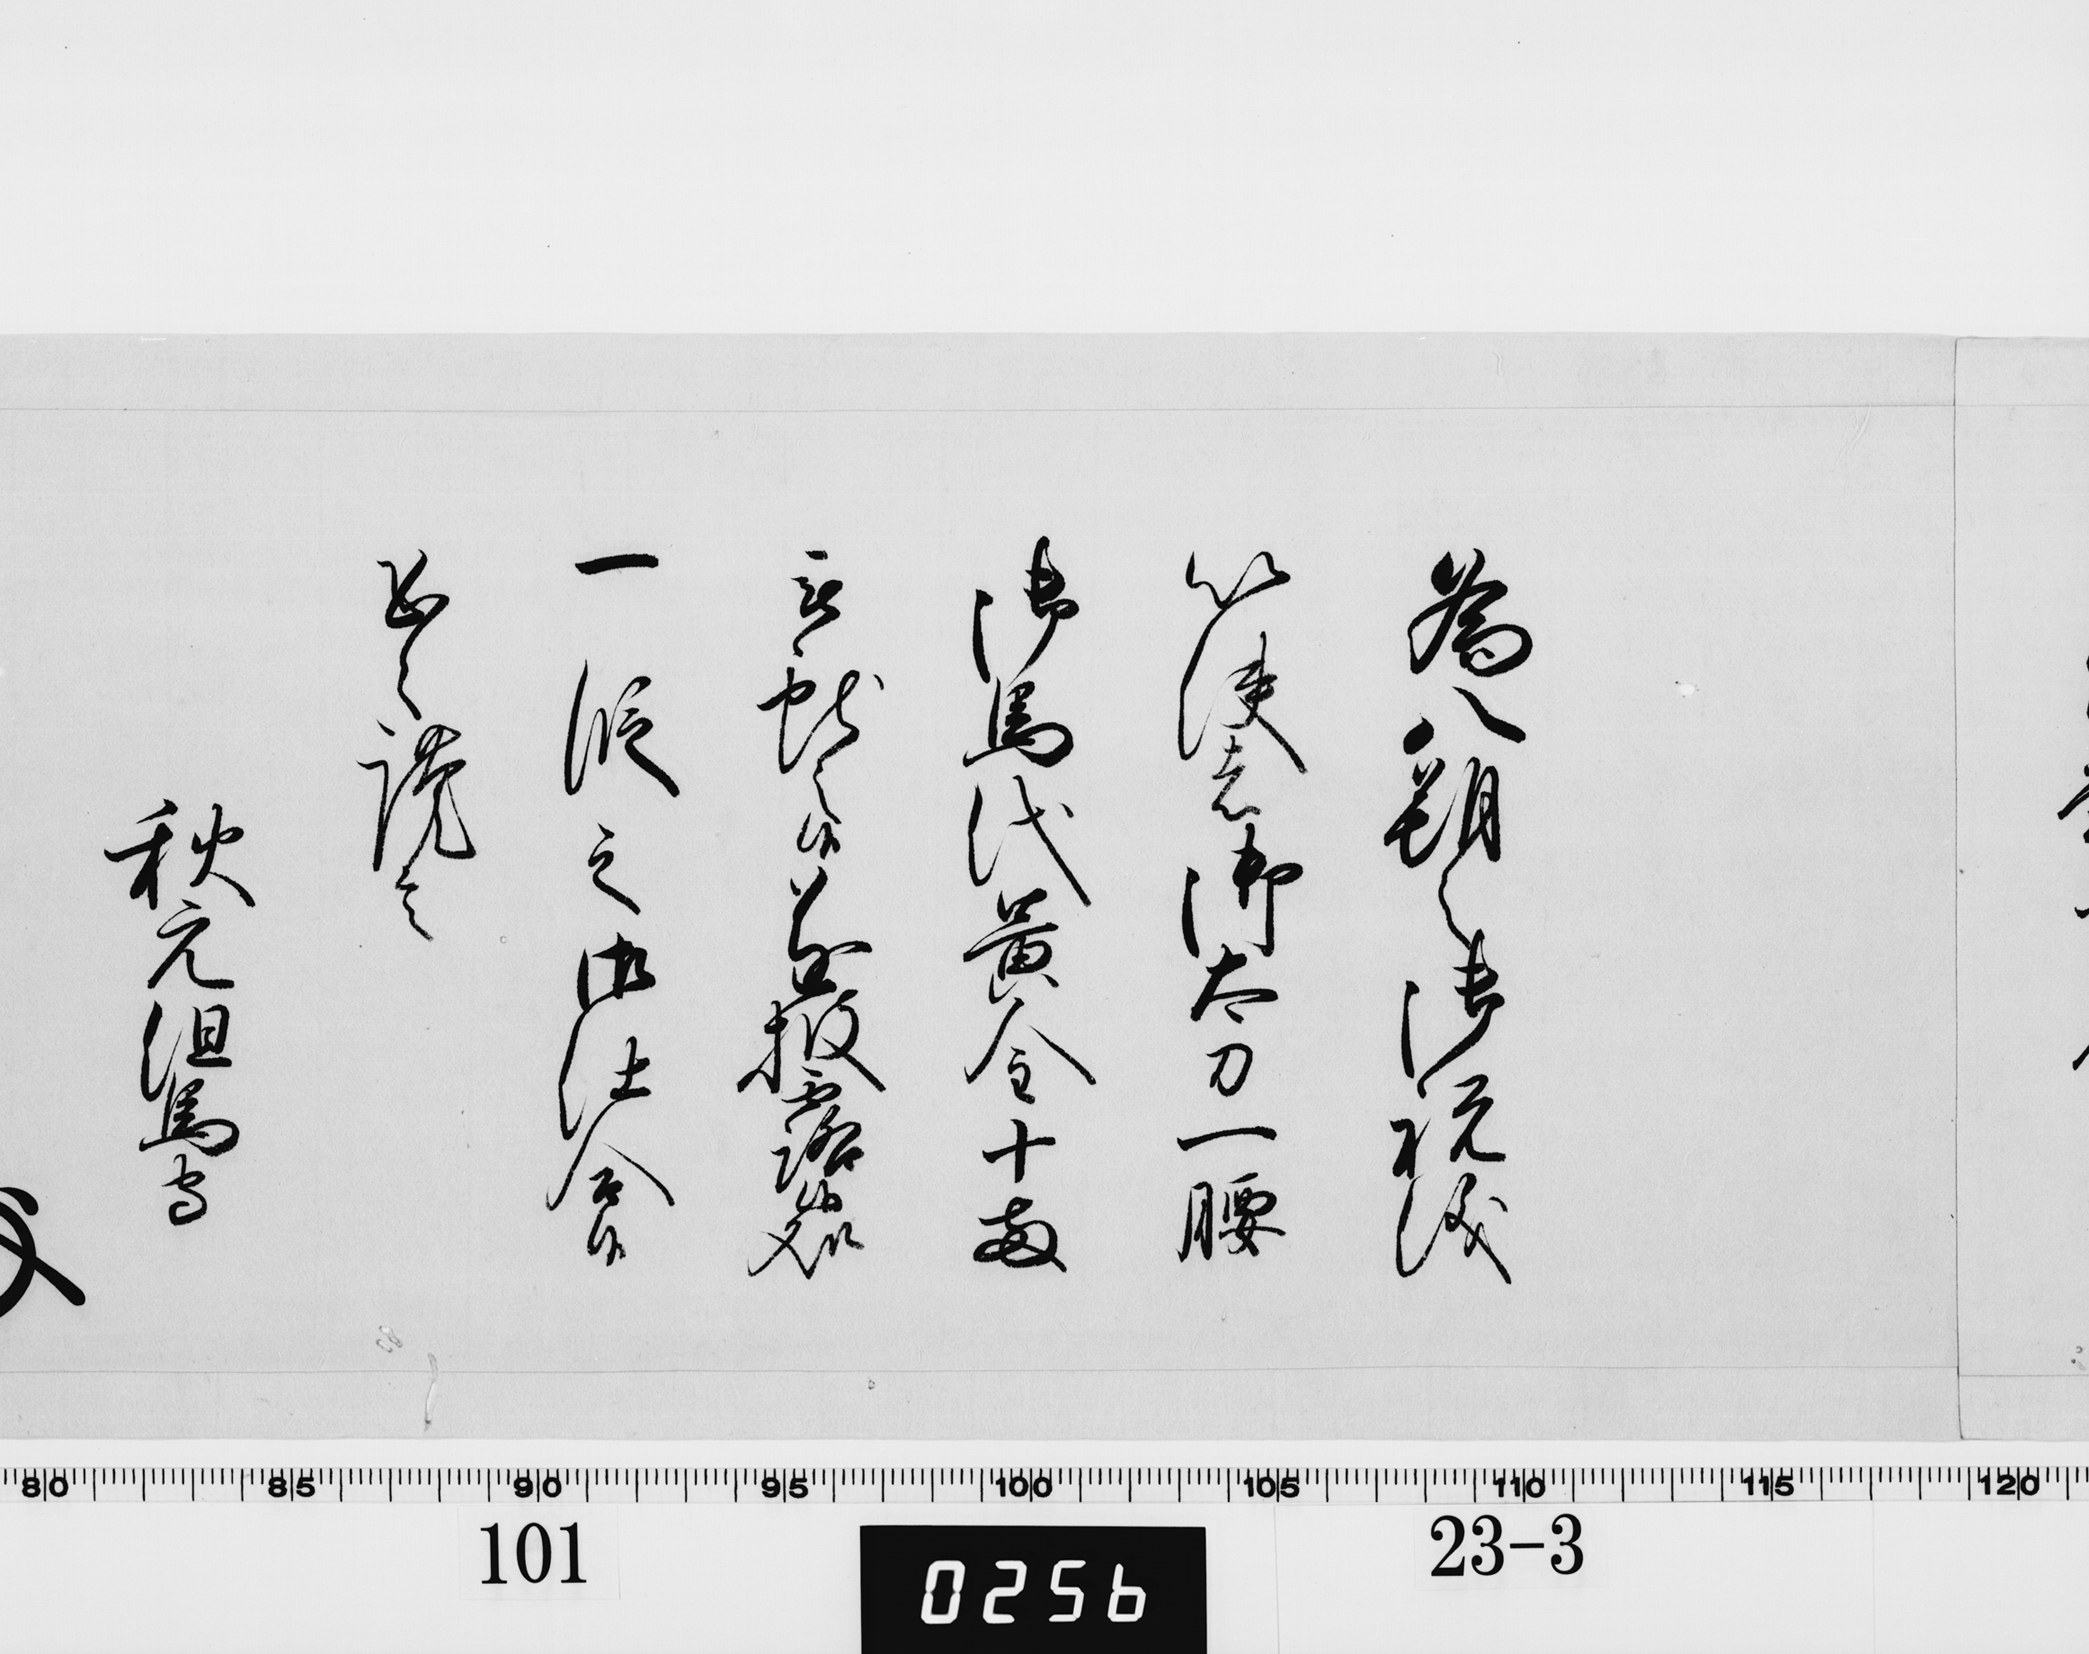 為八朔之御祝儀
以使者御太刀一腰
御馬代黄金十両
被献之候遂披露候処
一段之御仕合候
恐々謹言
秋元但馬守
80 85 90 95 100 105 110 115 120
101
0256
23-3